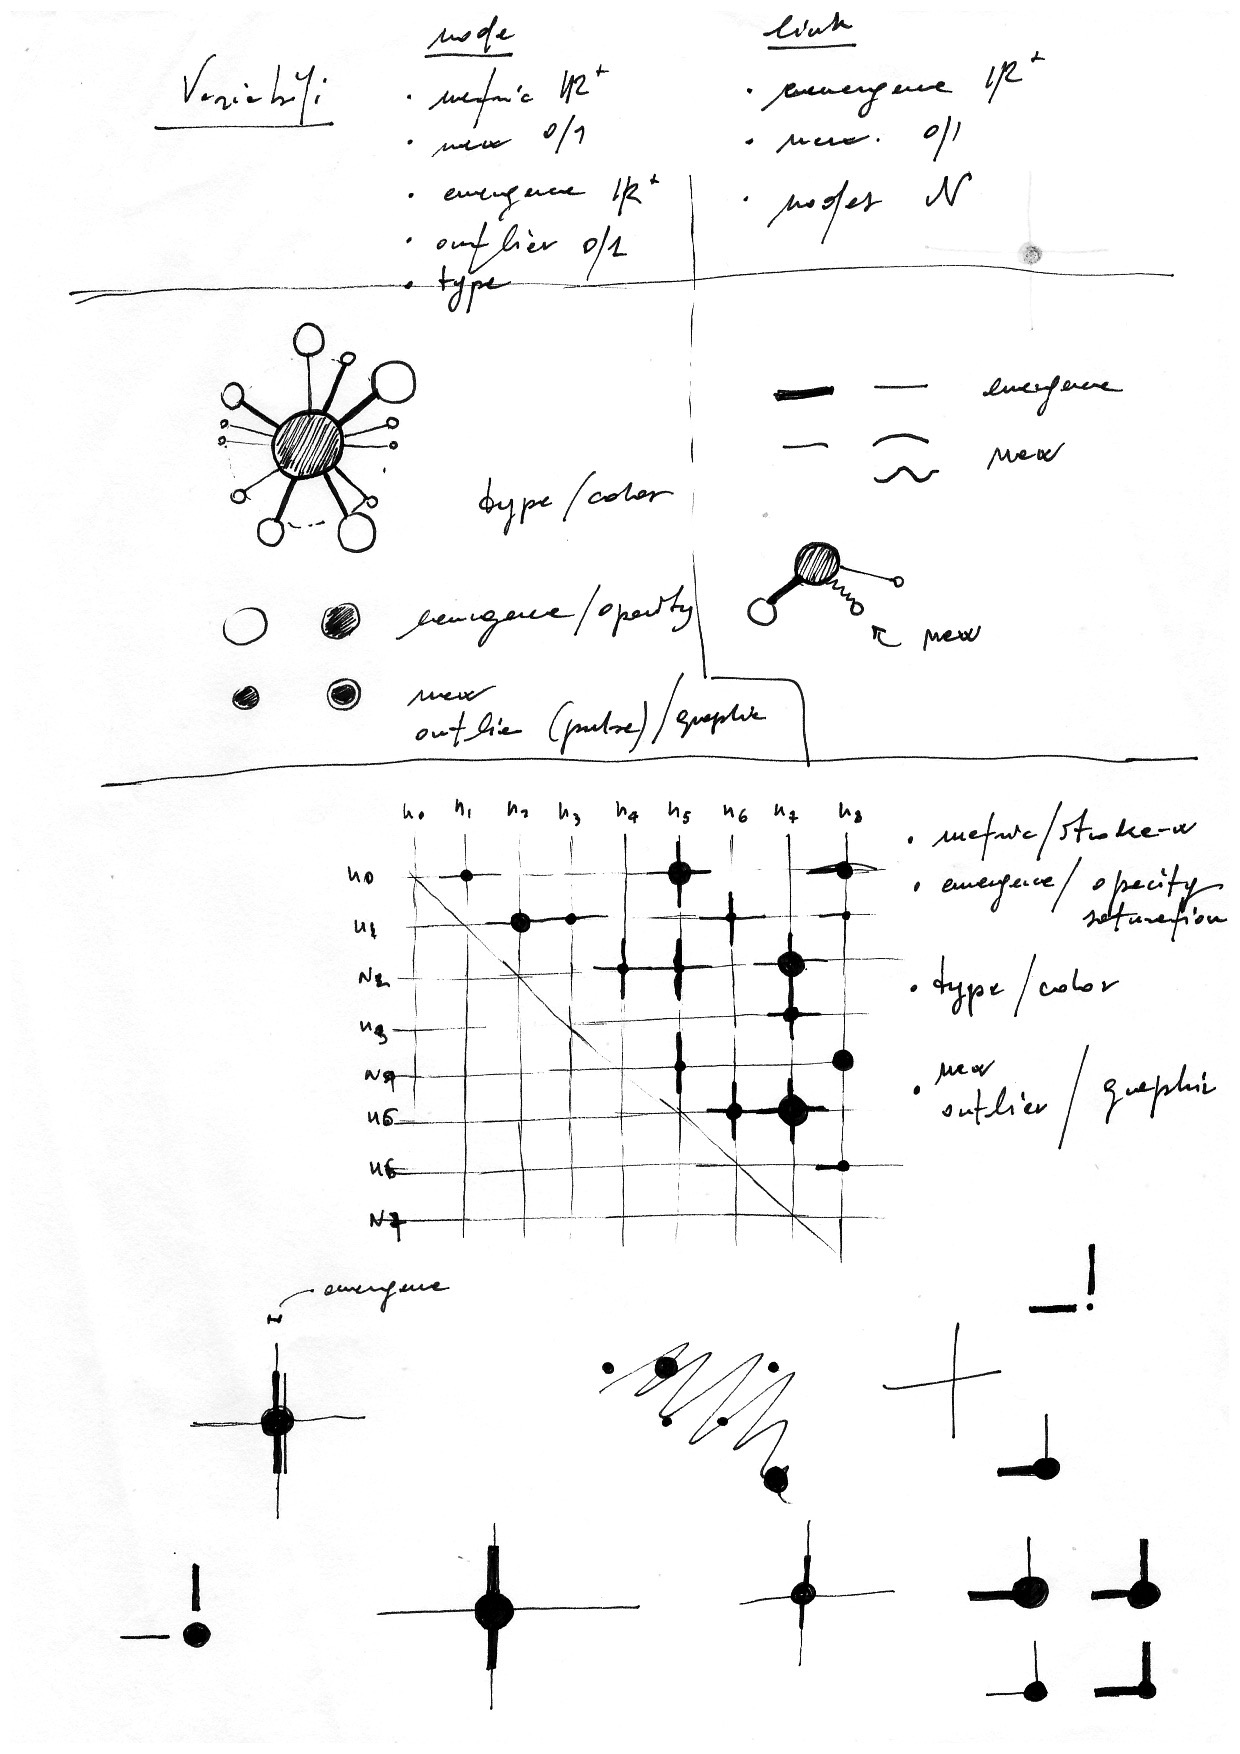 node
link
Variabili
• metric IR+
• new 0/1
• emergence IR+
• outlier 0/1
• type
• emergence IR+
• new. 0/1
• nodes N
emergence
new
type/color
emergence/opacity
new
new
outlier (pulse)/graphic
n0 n1 n2 n3 n4 n5 n6 n7 n8
n0
n1
N2
n3
N4
n5
n6
N7
• metric/stroke-w
• emergence/opacity
saturation
• type/color
• new
outlier/graphic
emergence